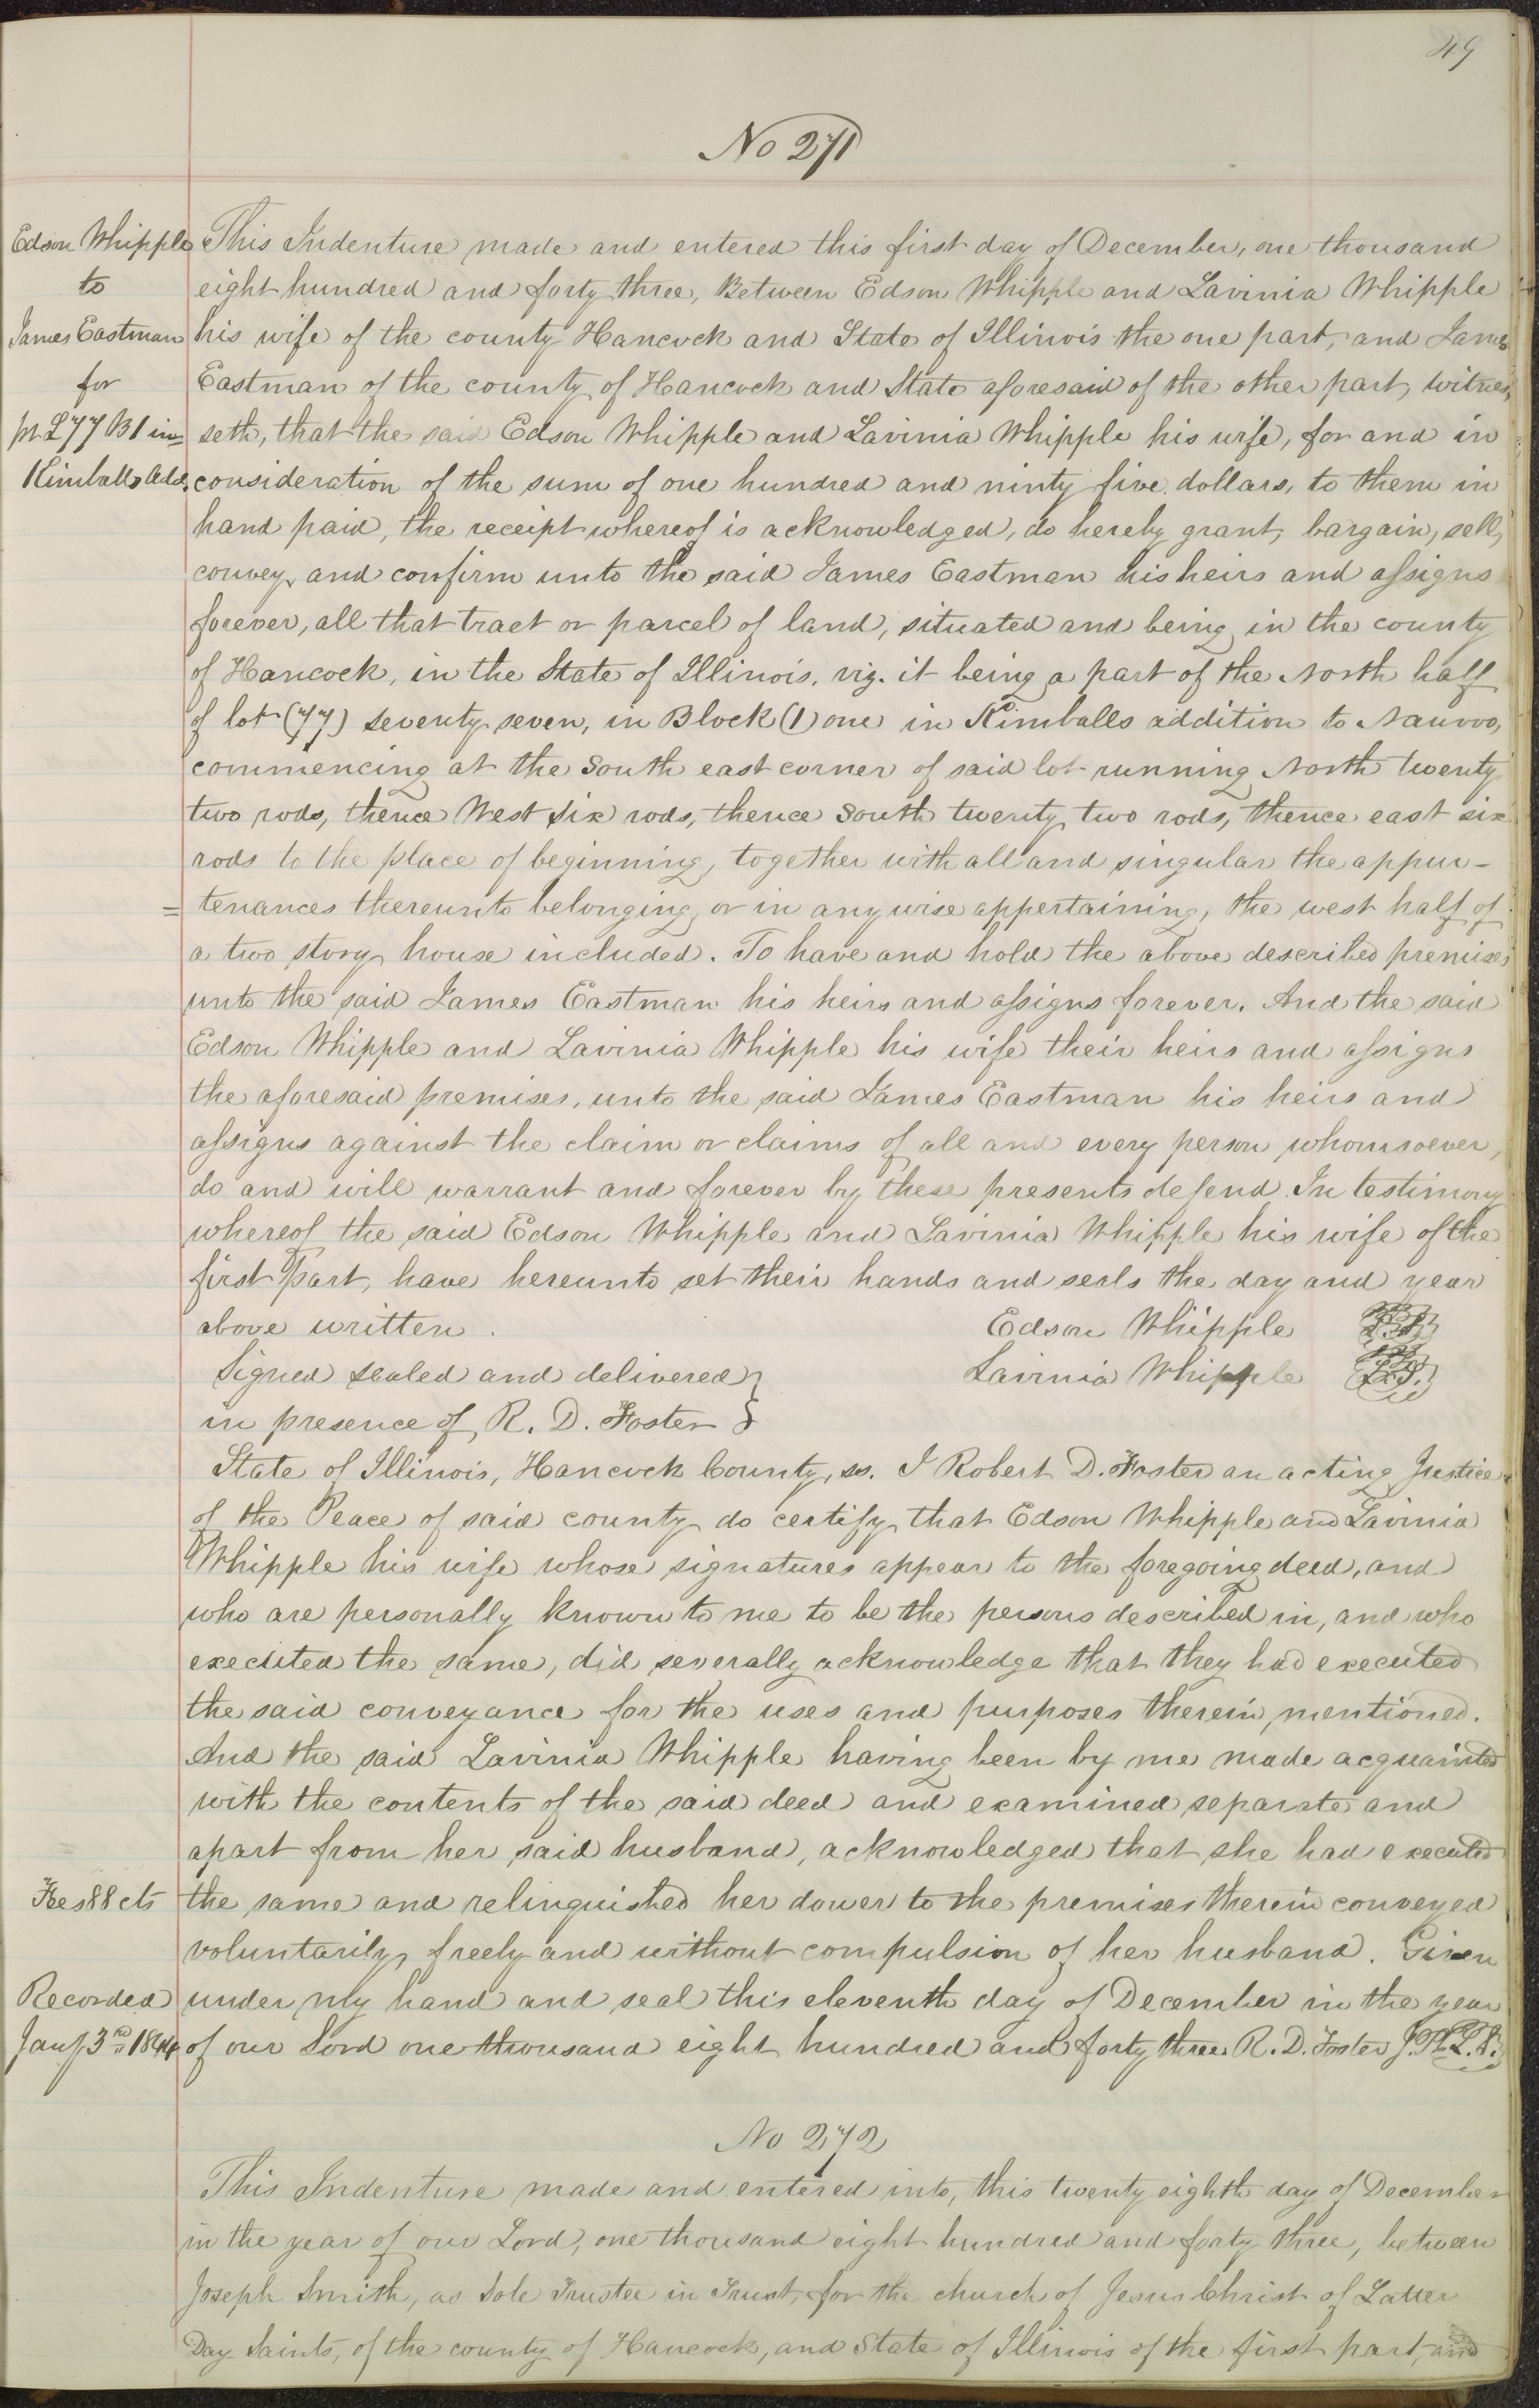 49
No 271
Edson Whipple
to
James Eastman
for
pt L 77 B 1 in
Kimballs Add.
This Indenture made and entered this first day of December, one thousand
eight hundred and forty three, Between Edson Whipple and Lavinia Whipple
his wife of the county Hancock and State of Illinois the one part, and James
Eastman of the county of Hancock and State aforesaid of the other part, witnes,
seth, that the said Edson Whipple and Lavinia Whipple his wife, for and in
consideration of the sum of one hundred and ninty five dollars, to them in
hand paid, the receipt whereof is acknowledged, do hereby grant, bargain, sell,
convey, and confirm unto the said James Eastman his heirs and assigns
forever, all that tract or parcel of land, situated and being in the county
of Hancock, in the State of Illinois, viz. it being a part of the North half
of lot (77) seventy seven, in Block (1) one in Kimballs addition to Nauvoo,
commencing at the South east corner of said lot running North twenty
two rods, thence West six rods, thence South twenty two rods, thence east six
rods to the place of beginning, together with all and singular the appur-
=tenances thereunto belonging, or in any wise appertaining, the west half of
a two story house included. To have and hold the above described premises
unto the said James Eastman his heirs and assigns forever. And the said
Edson Whipple and Lavinia Whipple his wife their heirs and assigns
the aforesaid premises, unto the said James Eastman his heirs and
assigns against the claim or claims of all and every person whomsoever,
do and will warrant and forever by these presents defend. In testimony
whereof the said Edson Whipple and Lavinia Whipple his wife of the
first Part, have hereunto set their hands and seals the day and year
above written. Edson Whipple L.S.
Signed sealed and delivered } Lavinia Whipple L.S.
in presence of R. D. Foster }
State of Illinois, Hancock County, ss. I Robert D. Foster an acting Justice
of the Peace of said county do certify that Edson Whipple and Lavinia
Whipple his wife whose signatures appear to the foregoing deed, and
who are personally known to me to be the persons described in, and who
executed the same, did severally acknowledge that they had executed
the said conveyance for the uses and purposes therein mentioned.
And the said Lavinia Whipple having been by me made acquainted
with the contents of the said deed and examined separate and
apart from her said husband, acknowledged that she had executed
Fees 88 cts
the same and relinquished her dower to the premises therein conveyed
voluntarily, freely and without compulsion of her husband. Given
Recorded
under my hand and seal this eleventh day of December in the year
Jany 3rd 1844
of our Lord one thousand eight hundred and forty three R. D. Foster J.P. L.S.
No 272
This Indenture made and entered into, this twenty eighth day of December
in the year of our Lord, one thousand eight hundred and forty three, between
Joseph Smith, as Sole Trustee in Trust, for the church of Jesus Christ of Latter
Day Saints, of the county of Hancock, and State of Illinois of the first part, and